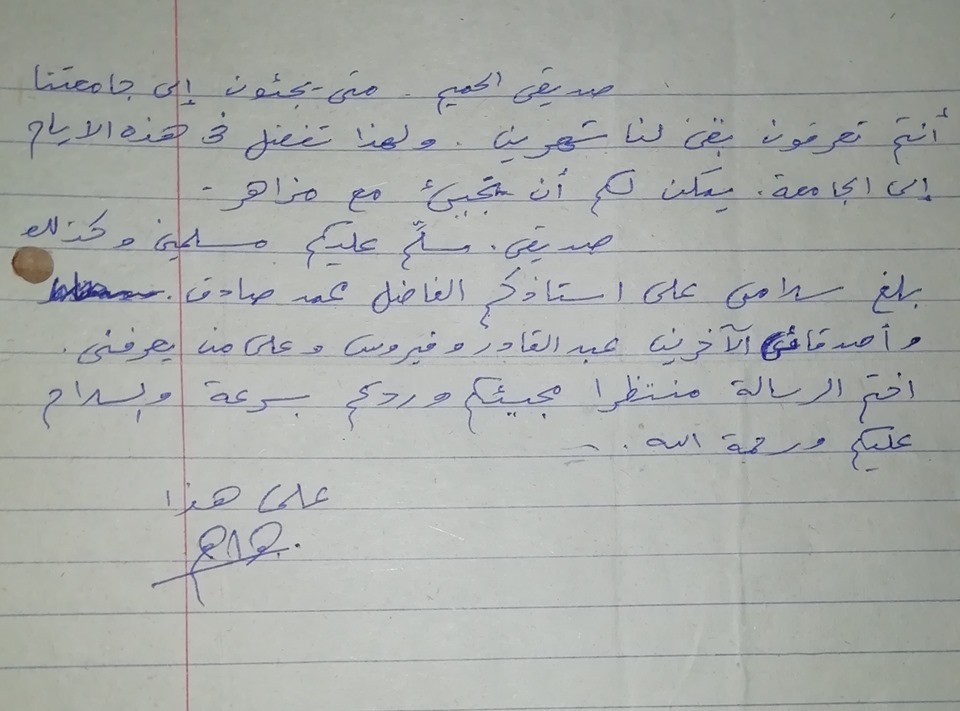 صديقي الحميم . متى تجئون إلى جامعتنا
أنتم تعرفون بقى لنا شهرين . ولهذا تفضل في هذه الايام
إلى الجامعة . يمكن لكم أن تجيئ مع مزاهر .
صديقي . سلّم عليكم مسلمين وكذلك
بلغ سلامي على استاذكم الفاضل محمد صادق .
وأصدقائي الآخرين عبد القادر وفيروس وعلى من يعرفني .
اختم الرسالة منتظرا مجيئكم وردكم بسرعة والسلام
عليكم ورحمة الله .
على هذا